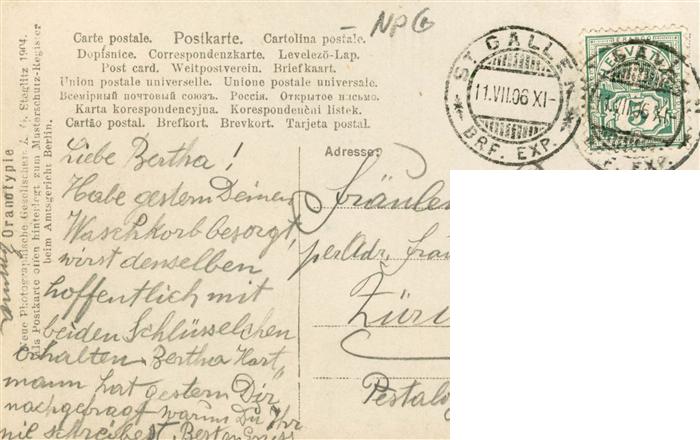 NPG
Carte postale. Postkarte. Cartolina postale.
Dopisnice. Correspondenzkarte. Levelező-Lap.
Post card. Weltpostverein. Briefkaart.
Union postale universelle. Unione postale universale.
Всемірный почтовый союзъ. Россія. Открытое письмо.
Karta korespondencyjna. Korespondenčni listek.
Cartão postal. Brefkort. Brevkort. Tarjeta postal.
ST GALLEN
11.VII.06 XI-
BRF. EXP.
Oranotypie
Neue Photographische Gesellschaft A. G. Steglitz 1904.
als Postkarte offen hinterlegt zum Musterschutz-Register
beim Amtsgericht Berlin.
Liebe Bertha!
Habe gestern Deinen
Waschkorb besorgt,
wirst denselben
hoffentlich mit
beiden Schlüsselchen
erhalten. Bertha Hart
mann hat gestern Dir
nachgefragt warum Du Ihr
nie schreibest. Besten Gruss
Adresse:
Fräulein
per Adr. Frau
Züri
Pestalo